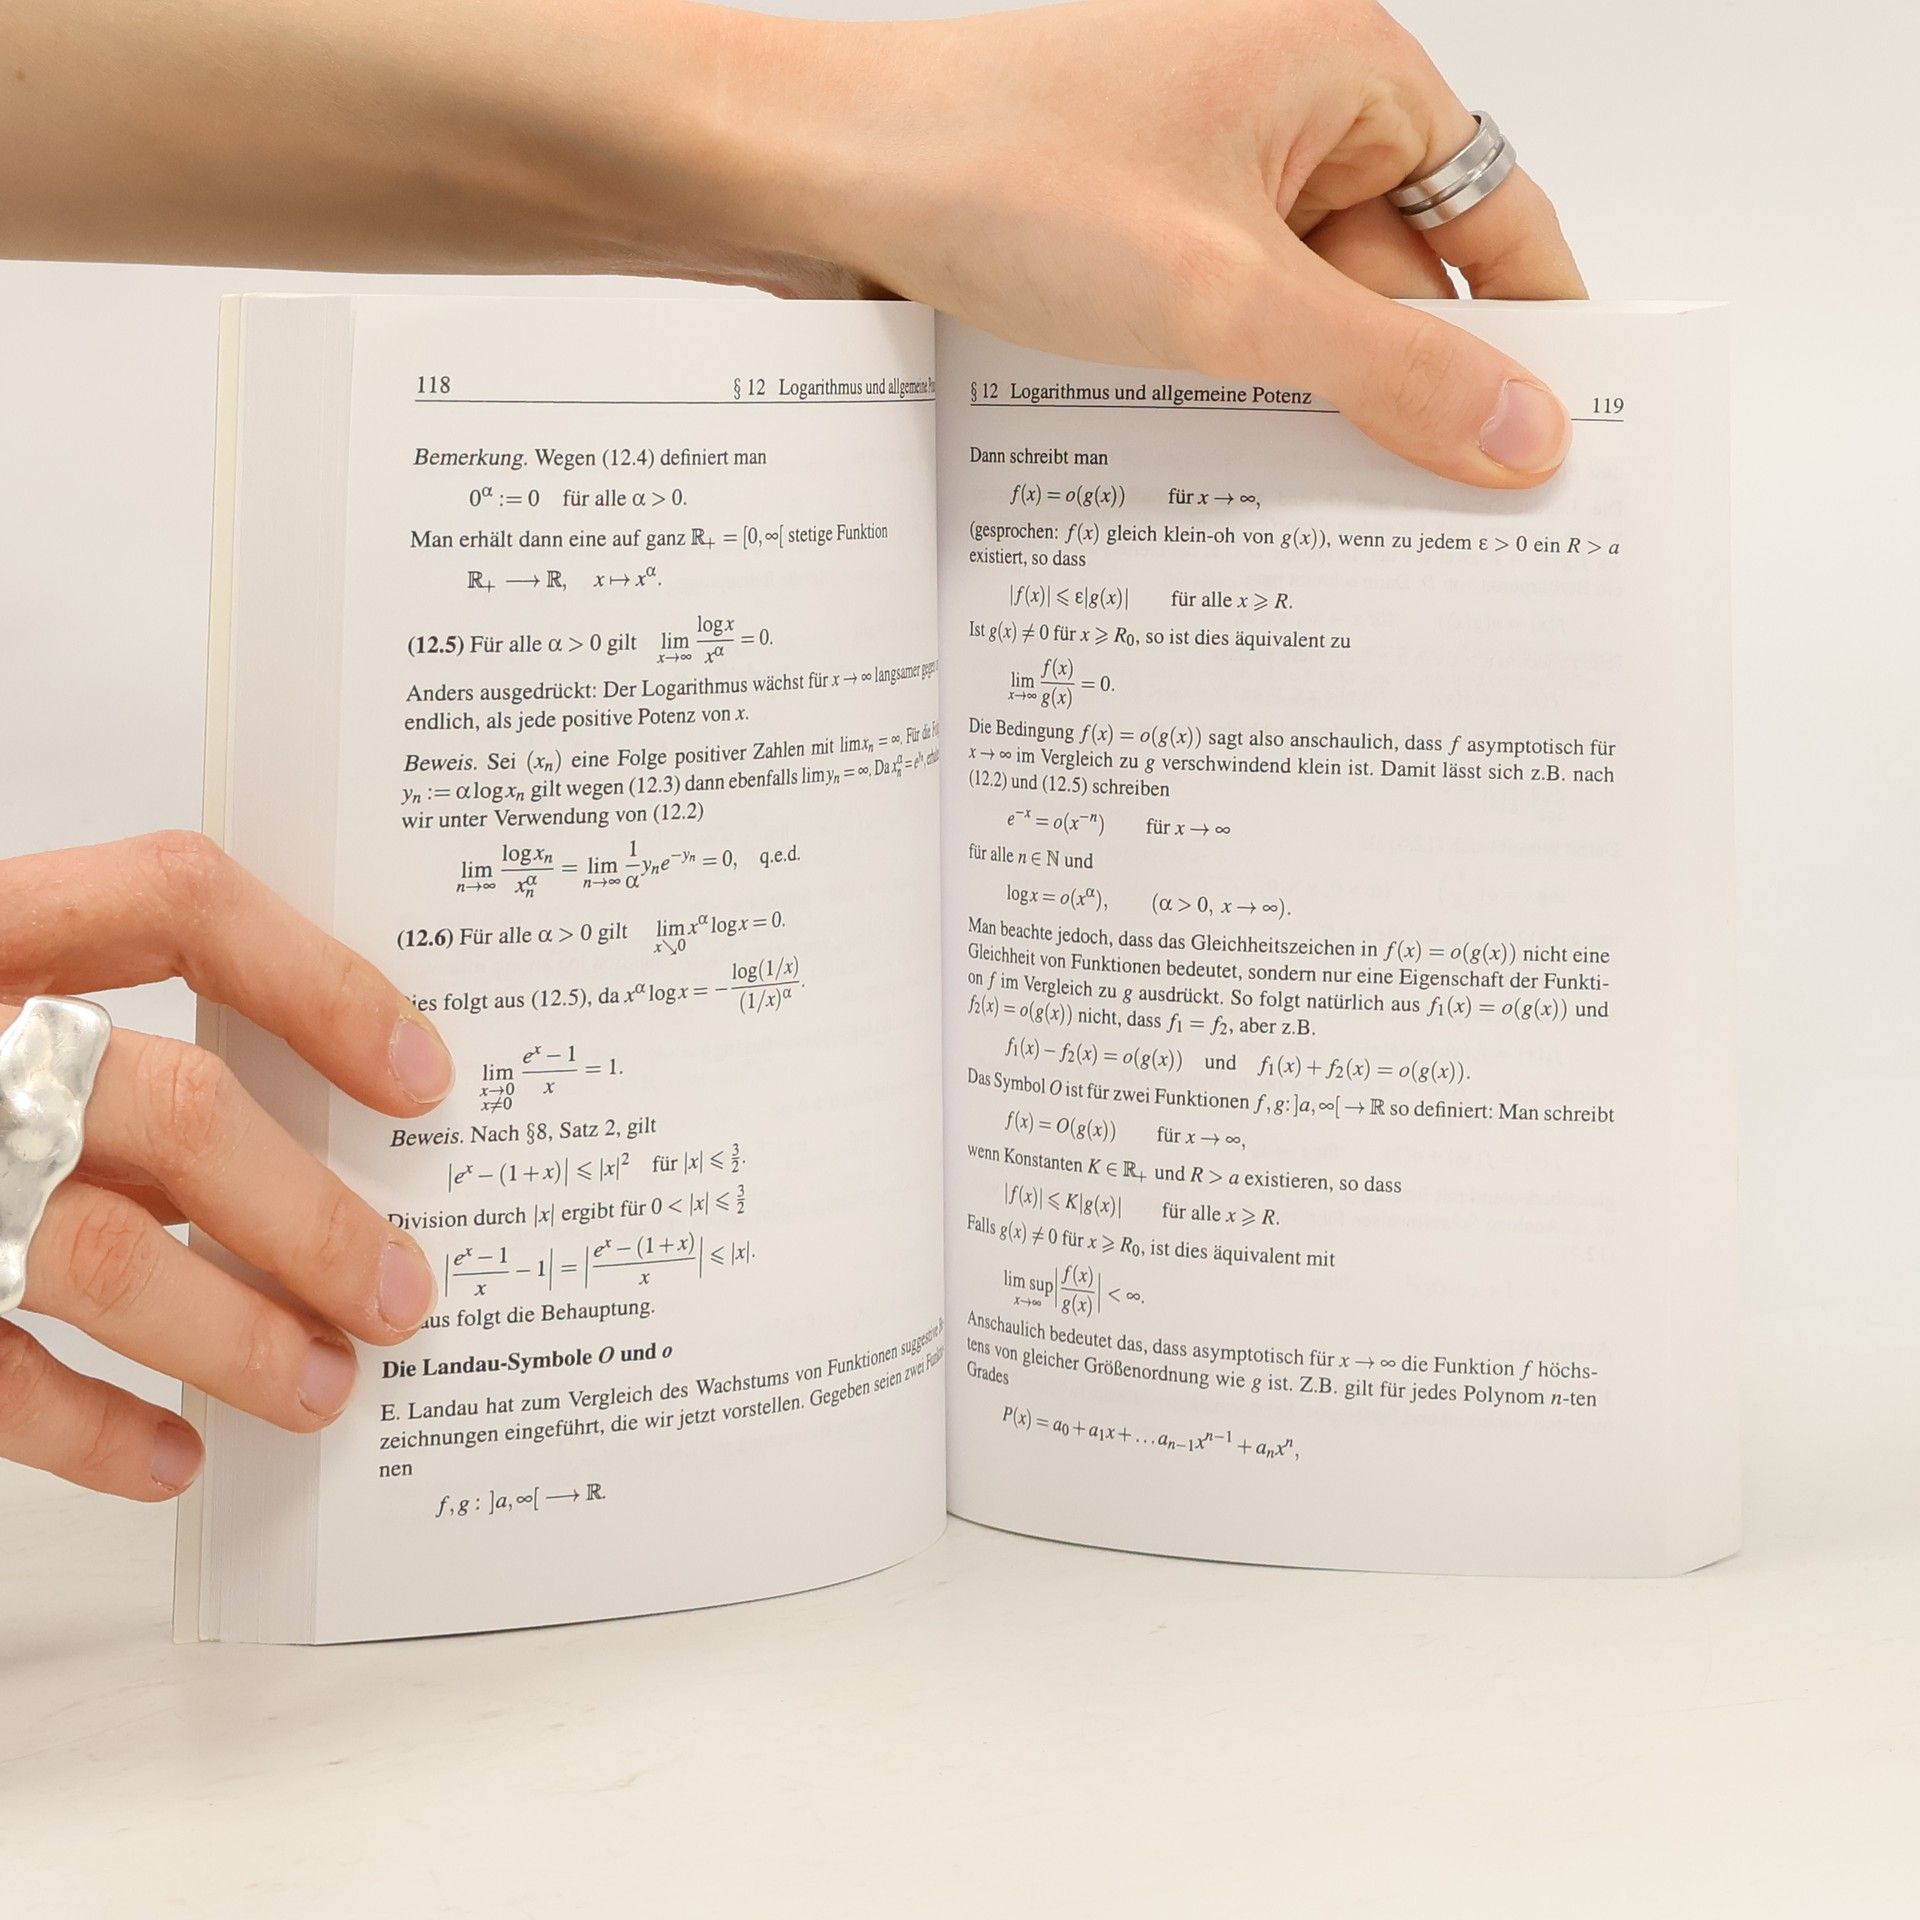 118 § 12 Logarithmus und allgemeine
Bemerkung. Wegen (12.4) definiert man
0^α := 0 für alle α > 0.
Man erhält dann eine auf ganz ℝ₊ = [0,∞[ stetige Funktion
ℝ₊ ⟶ ℝ, x ↦ x^α.
(12.5) Für alle α > 0 gilt lim_{x→∞} log x / x^α = 0.
Anders ausgedrückt: Der Logarithmus wächst für x → ∞ langsamer gegen
endlich, als jede positive Potenz von x.
Beweis. Sei (x_n) eine Folge positiver Zahlen mit lim x_n = ∞. Für die
y_n := α log x_n gilt wegen (12.3) dann ebenfalls lim y_n = ∞. Da x_n^α = e^{y_n},
wir unter Verwendung von (12.2)
lim_{n→∞} log x_n / x_n^α = lim_{n→∞} 1/α y_n e^{−y_n} = 0, q.e.d.
(12.6) Für alle α > 0 gilt lim_{x↘0} x^α log x = 0.
ies folgt aus (12.5), da x^α log x = − log(1/x) / (1/x)^α.
lim_{x→0, x≠0} (e^x − 1) / x = 1.
Beweis. Nach §8, Satz 2, gilt
|e^x − (1+x)| ⩽ |x|² für |x| ⩽ 3/2.
Division durch |x| ergibt für 0 < |x| ⩽ 3/2
|(e^x − 1)/x − 1| = |(e^x − (1+x))/x| ⩽ |x|.
aus folgt die Behauptung.
Die Landau-Symbole O und o
E. Landau hat zum Vergleich des Wachstums von Funktionen suggestive
zeichnungen eingeführt, die wir jetzt vorstellen. Gegeben seien zwei
nen
f,g : ]a,∞[ ⟶ ℝ.
§ 12 Logarithmus und allgemeine Potenz 119
Dann schreibt man
f(x) = o(g(x)) für x → ∞,
(gesprochen: f(x) gleich klein-oh von g(x)), wenn zu jedem ε > 0 ein R > a
existiert, so dass
|f(x)| ⩽ ε|g(x)| für alle x ⩾ R.
Ist g(x) ≠ 0 für x ⩾ R₀, so ist dies äquivalent zu
lim_{x→∞} f(x)/g(x) = 0.
Die Bedingung f(x) = o(g(x)) sagt also anschaulich, dass f asymptotisch für
x → ∞ im Vergleich zu g verschwindend klein ist. Damit lässt sich z.B. nach
(12.2) und (12.5) schreiben
e^{−x} = o(x^{−n}) für x → ∞
für alle n ∈ ℕ und
log x = o(x^α), (α > 0, x → ∞).
Man beachte jedoch, dass das Gleichheitszeichen in f(x) = o(g(x)) nicht eine
Gleichheit von Funktionen bedeutet, sondern nur eine Eigenschaft der Funkti-
on f im Vergleich zu g ausdrückt. So folgt natürlich aus f₁(x) = o(g(x)) und
f₂(x) = o(g(x)) nicht, dass f₁ = f₂, aber z.B.
f₁(x) − f₂(x) = o(g(x)) und f₁(x) + f₂(x) = o(g(x)).
Das Symbol O ist für zwei Funktionen f,g: ]a,∞[ → ℝ so definiert: Man schreibt
f(x) = O(g(x)) für x → ∞,
wenn Konstanten K ∈ ℝ₊ und R > a existieren, so dass
|f(x)| ⩽ K|g(x)| für alle x ⩾ R.
Falls g(x) ≠ 0 für x ⩾ R₀, ist dies äquivalent mit
lim sup_{x→∞} |f(x)/g(x)| < ∞.
Anschaulich bedeutet das, dass asymptotisch für x → ∞ die Funktion f höchs-
tens von gleicher Größenordnung wie g ist. Z.B. gilt für jedes Polynom n-ten
Grades
P(x) = a₀ + a₁x + … a_{n−1}x^{n−1} + a_n x^n,